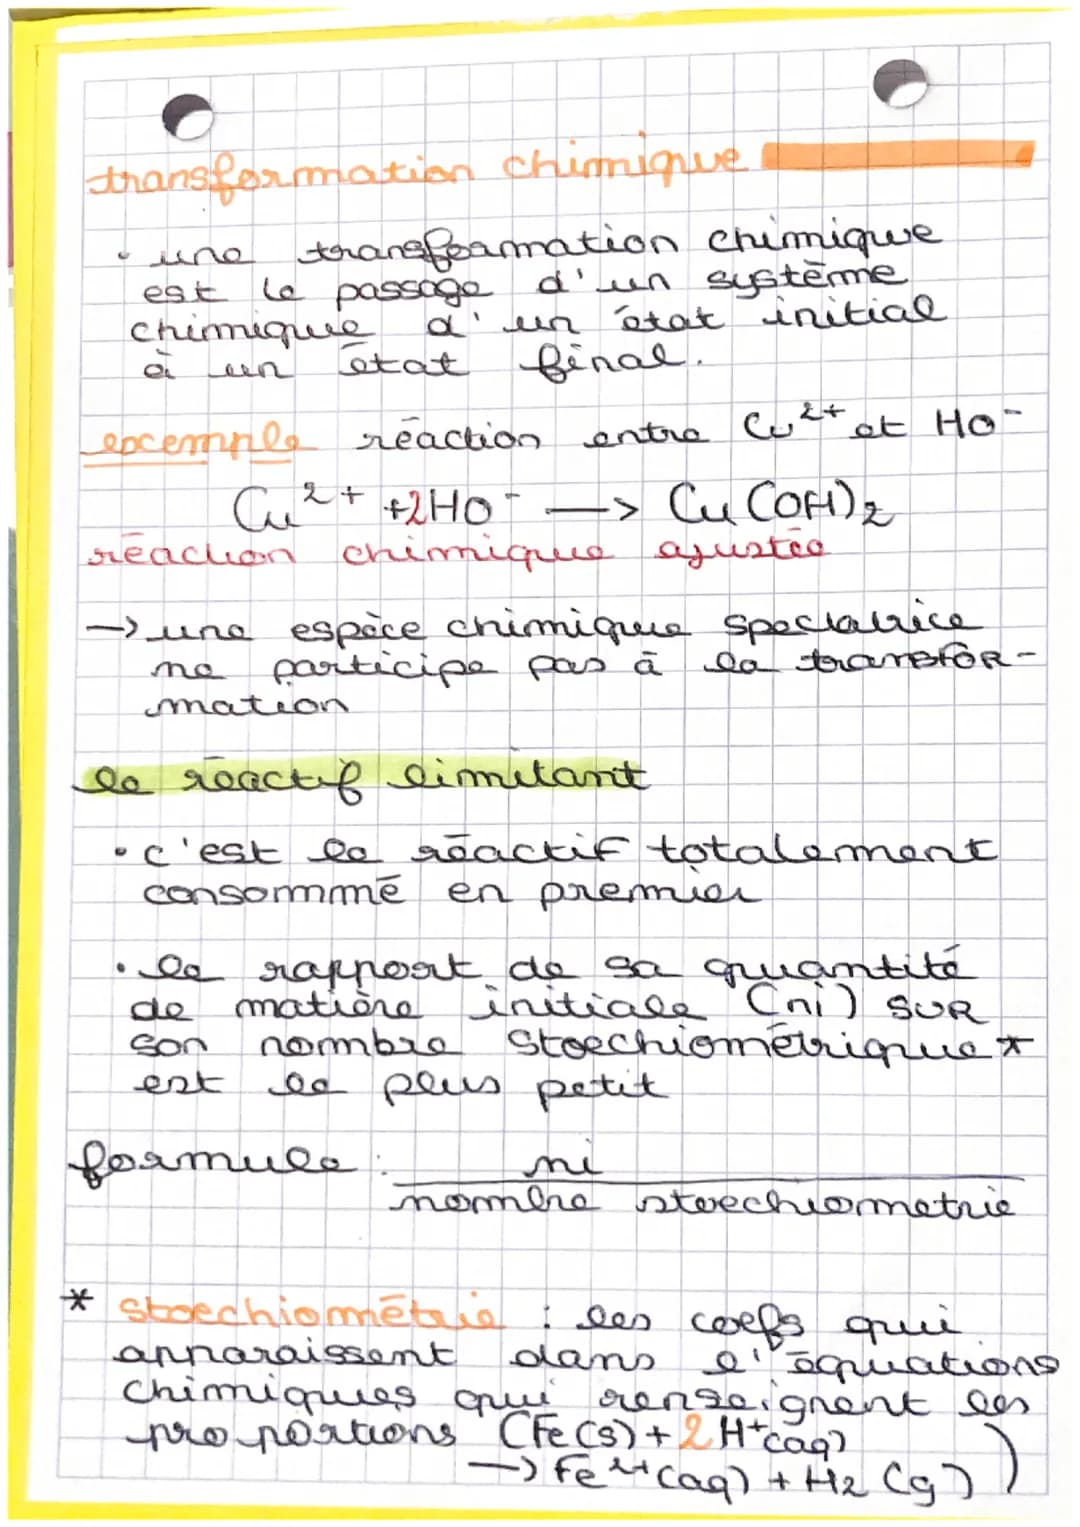 transformation chimique
• une transformation chimique
est le passage d'un système
chimique d'un état initial
à un état final.
excemple réaction entre Cu²⁺ et HO⁻
Cu²⁺ +2HO⁻ —> Cu (OH)₂
réaction chimique ajustée
—> une espèce chimique spectatrice
ne participe pas à la transfor-
mation
le réactif limitant
• c'est le réactif totalement
consommé en premier
• le rapport de sa quantité
de matière initiale (ni) sur
son nombre stoechiométrique *
est le plus petit
formule : ni
nombre stoechiometrie
* stoechiométrie : les coefs qui
apparaissent dans l'équations
chimiques qui renseignent les
proportions (Fe(s) + 2H⁺(aq)
—> Fe²⁺(aq) + H₂ (g))